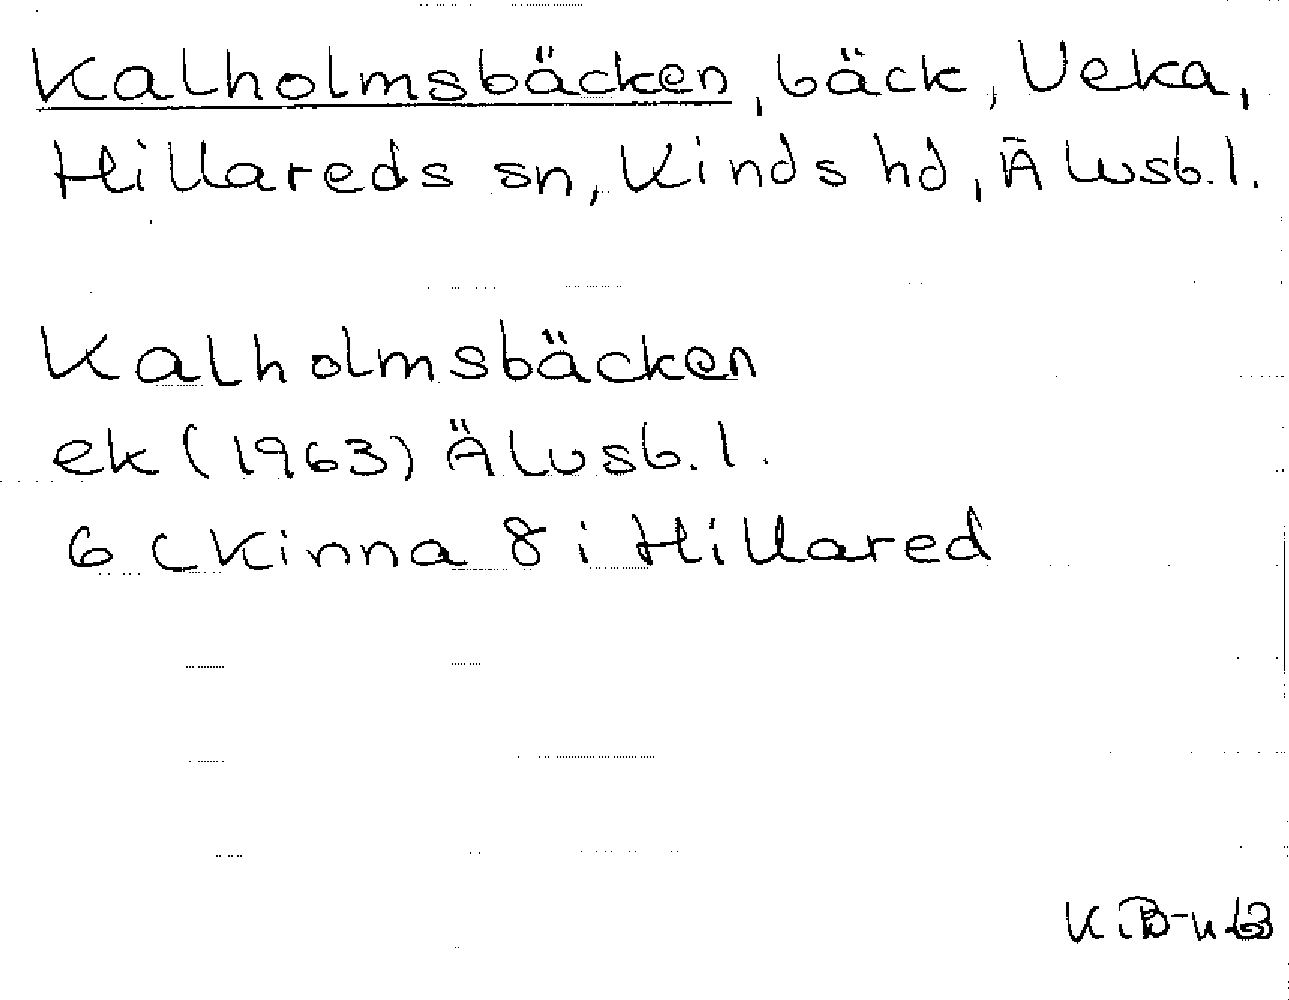 Kalholmsbäcken, bäck, Veka,
Hillareds sn, Kinds hd, Älvsb. l.
Kalholmsbäcken
ek (1963) Älvsb. l.
6 C Kinna 8 i Hillared